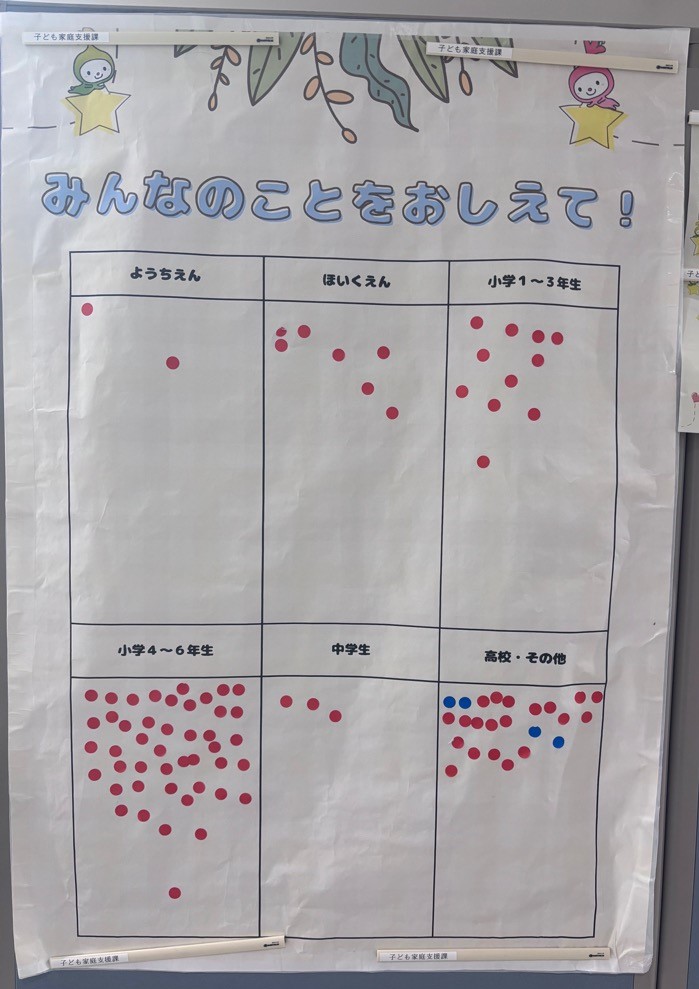 子ども家庭支援課
子ども家庭支援課
みんなのことをおしえて！
ようちえん
ほいくえん
小学１～３年生
小学４～６年生
中学生
高校・その他
子ども家庭支援課
子ども家庭支援課